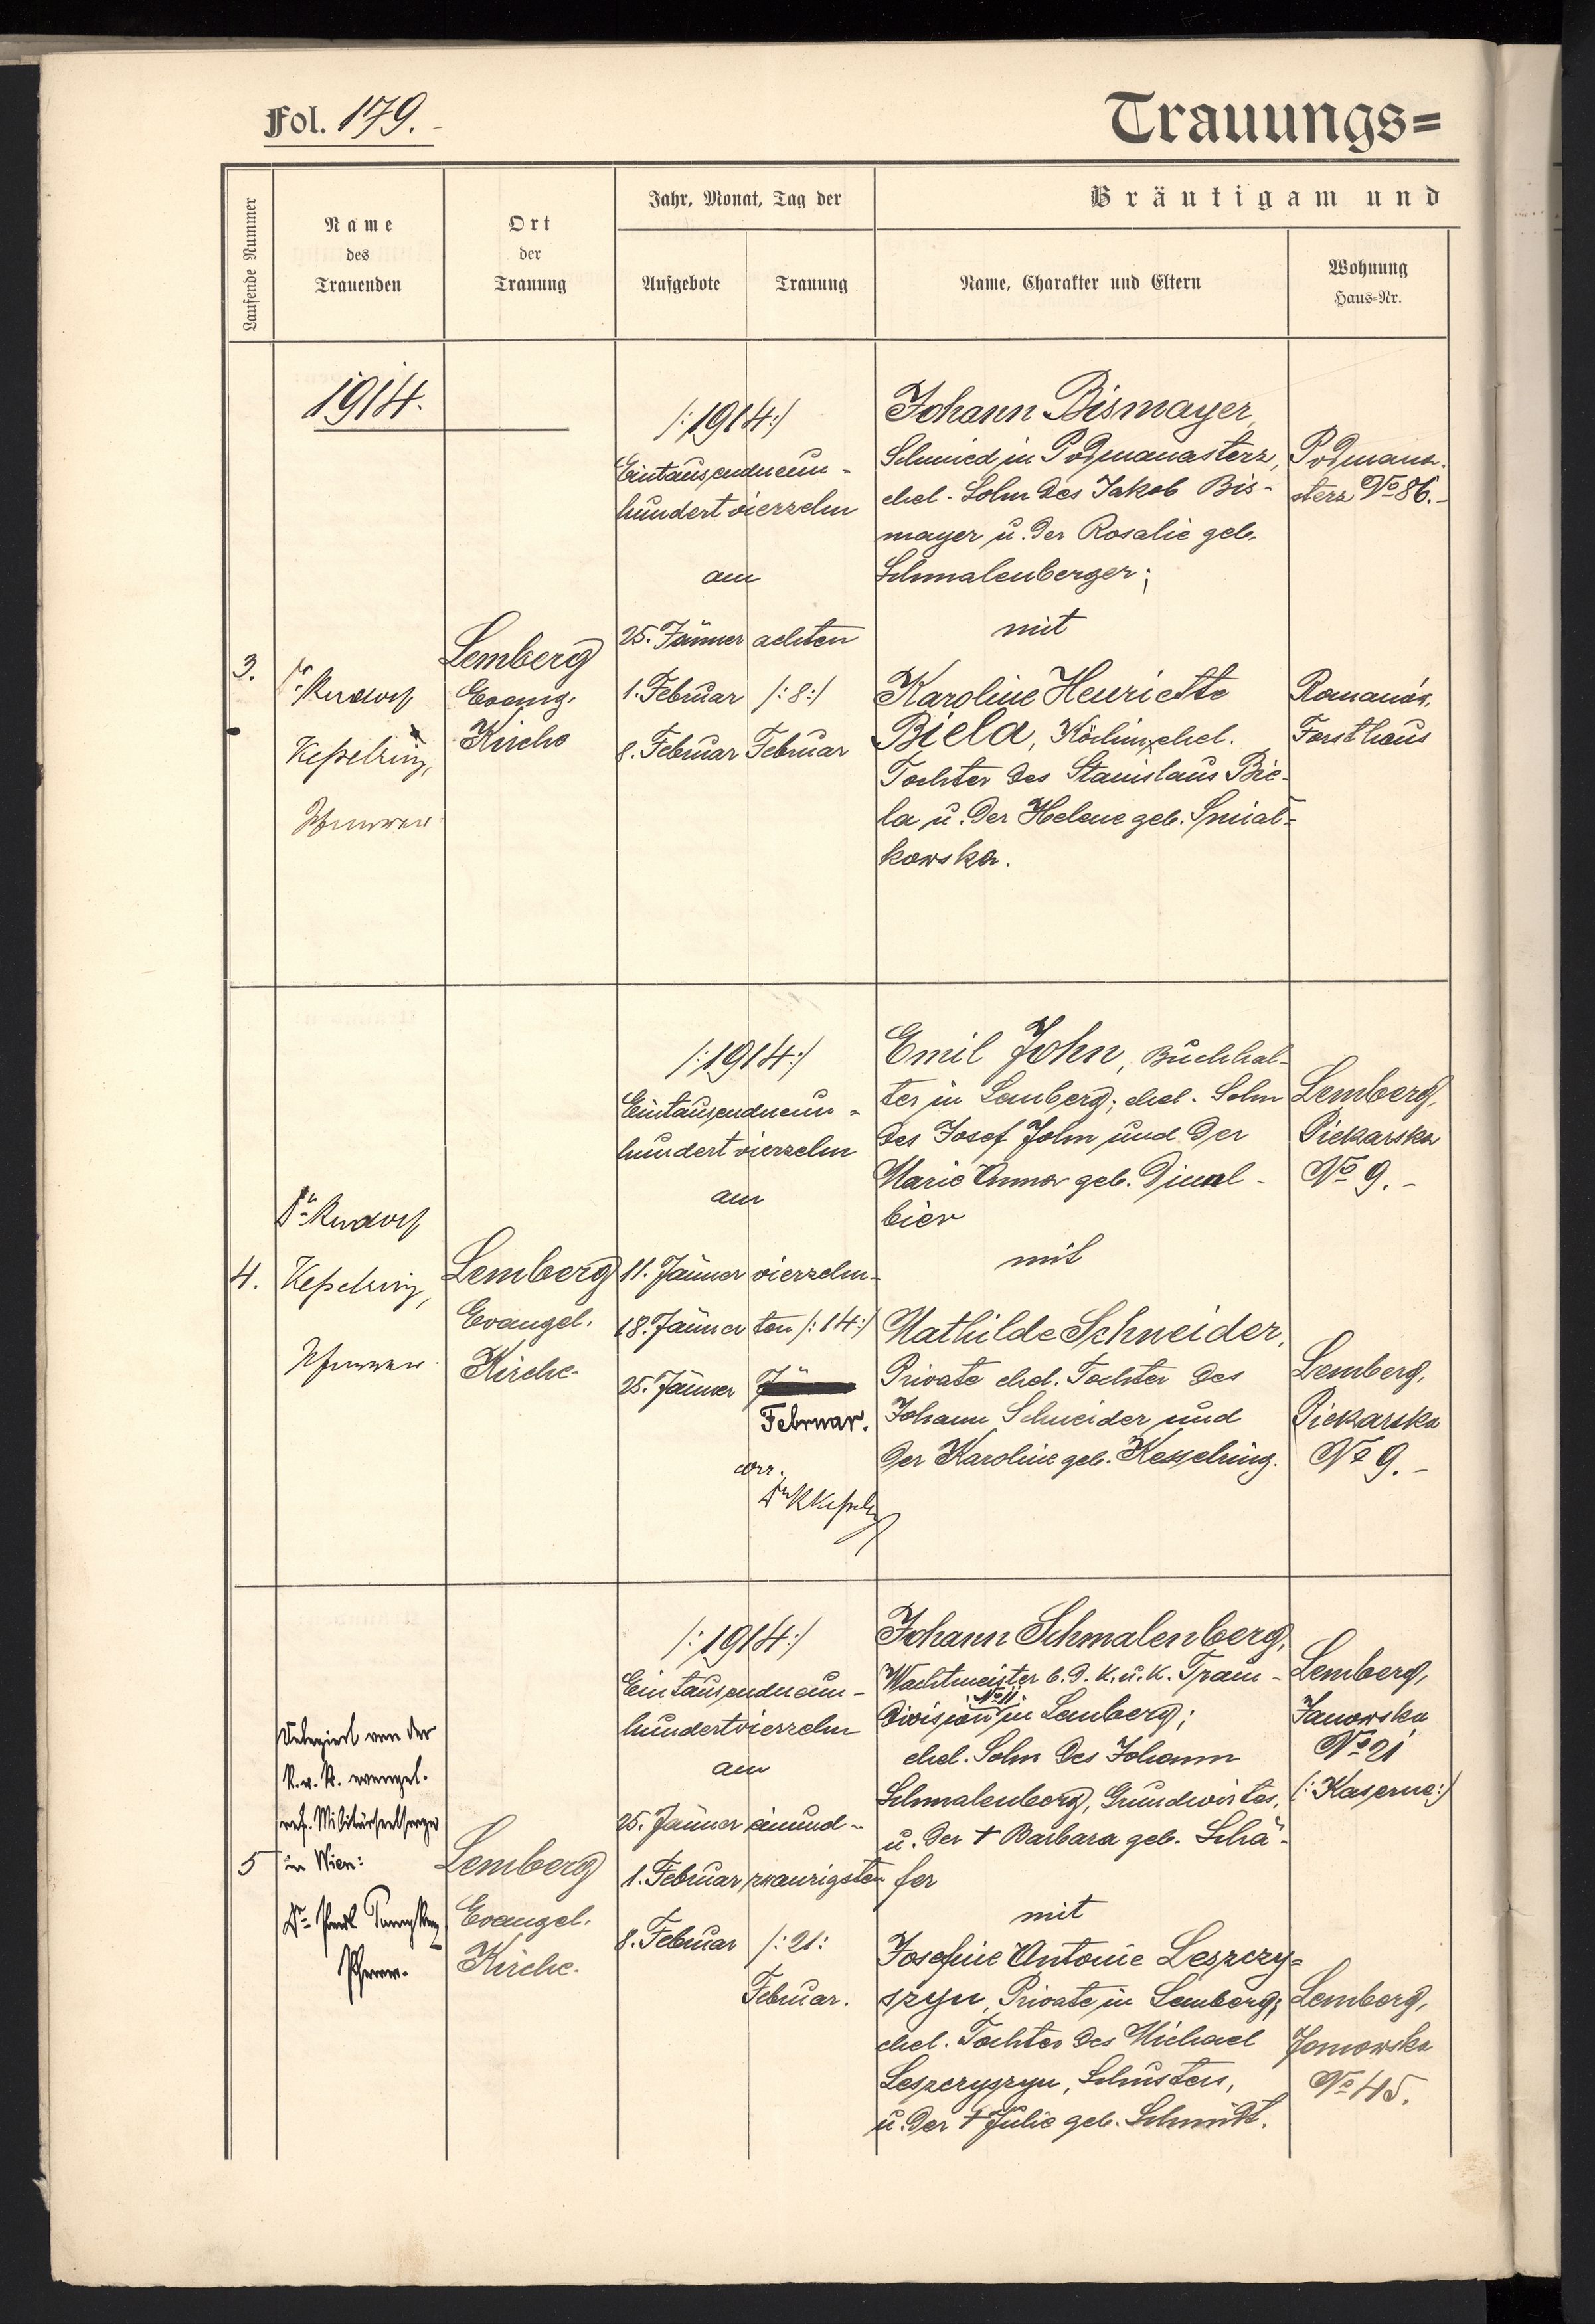 Fol. 179.-
Trauungs=
Laufende Nummer
Name
des
Trauenden
Ort
der
Trauung
Jahr, Monat, Tag der
Aufgebote
Trauung
Bräutigam und
Name, Charakter und Eltern
Wohnung
Haus=Nr.
1914.
3.
Dr. Rudolf
Keßelring,
Pfarrer
Lemberg
Evang.
Kirche
/:1914:/
Eintausendneun-
hundertvierzehn
am
25. Jänner
1. Februar
8. Februar
achten
/:8:/
Februar
Johann Bismayer,
Schmied in Podmanasterz,
ehel. Sohn des Jakob Bis-
mayer u. der Rosalie geb.
Schmalenberger;
mit
Karoline Henriette
Biela, Köchin, ehel.
Tochter des Stanislaus Bie-
la u. der Helene geb. Smial-
kowska.
Podmana-
sterz No 86.-
Romanów,
Forsthaus
4.
Dr. Rudolf
Keßelring,
Pfarrer.
Lemberg
Evangel.
Kirche.
/:1914:/
Eintausendneun-
hundertvierzehn
am
11. Jänner
18. Jänner
25. Jänner
vierzehn-
ten /:14:/
Februar.
corr.
Dr RKeßelring
Emil John, Buchhal-
ter in Lemberg; ehel. Sohn
des Josef John und der
Marie Anna geb. Dimal-
bier
mit
Mathilde Schneider,
Private ehel. Tochter des
Johann Schneider und
der Karoline geb. Kesselring.
Lemberg,
Piekarska
No 9.-
Lemberg,
Piekarska
No 9.-
5
Delegiert von der
k. u. k. evangel.
ref. Militärseelsorge
in Wien:
Dr.
Pfarrer.
Lemberg
Evangel.
Kirche.
/:1914:/
Eintausendneun-
hundertvierzehn
am
25. Jänner
1. Februar
8. Februar
einund-
zwanzigsten
/:21:
Februar.
Johann Schmalenberg,
Wachtmeister b. d. k. u. k. Train-
division No 11. in Lemberg;
ehel. Sohn des Johann
Schmalenberg, Grundwirtes,
u. der † Barbara geb. Schä-
fer
mit
Josefine Antonie Leszczy=
szyn, Private in Lemberg;
ehel. Tochter des Michael
Leszczyszyn, Schusters,
u. der † Julie geb. Schmidt.
Lemberg,
Janowska
No 21
(:Kaserne:)
Lemberg,
Janowska
No 45.